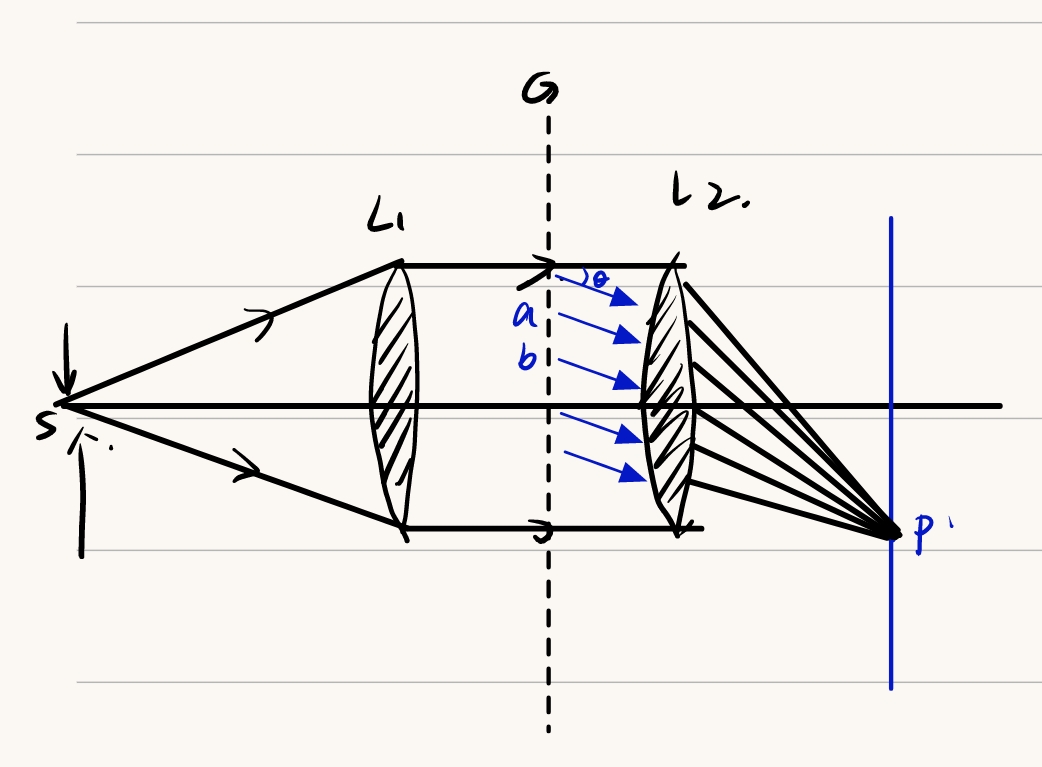 G
L1
L2.
θ
a
b
S
P'